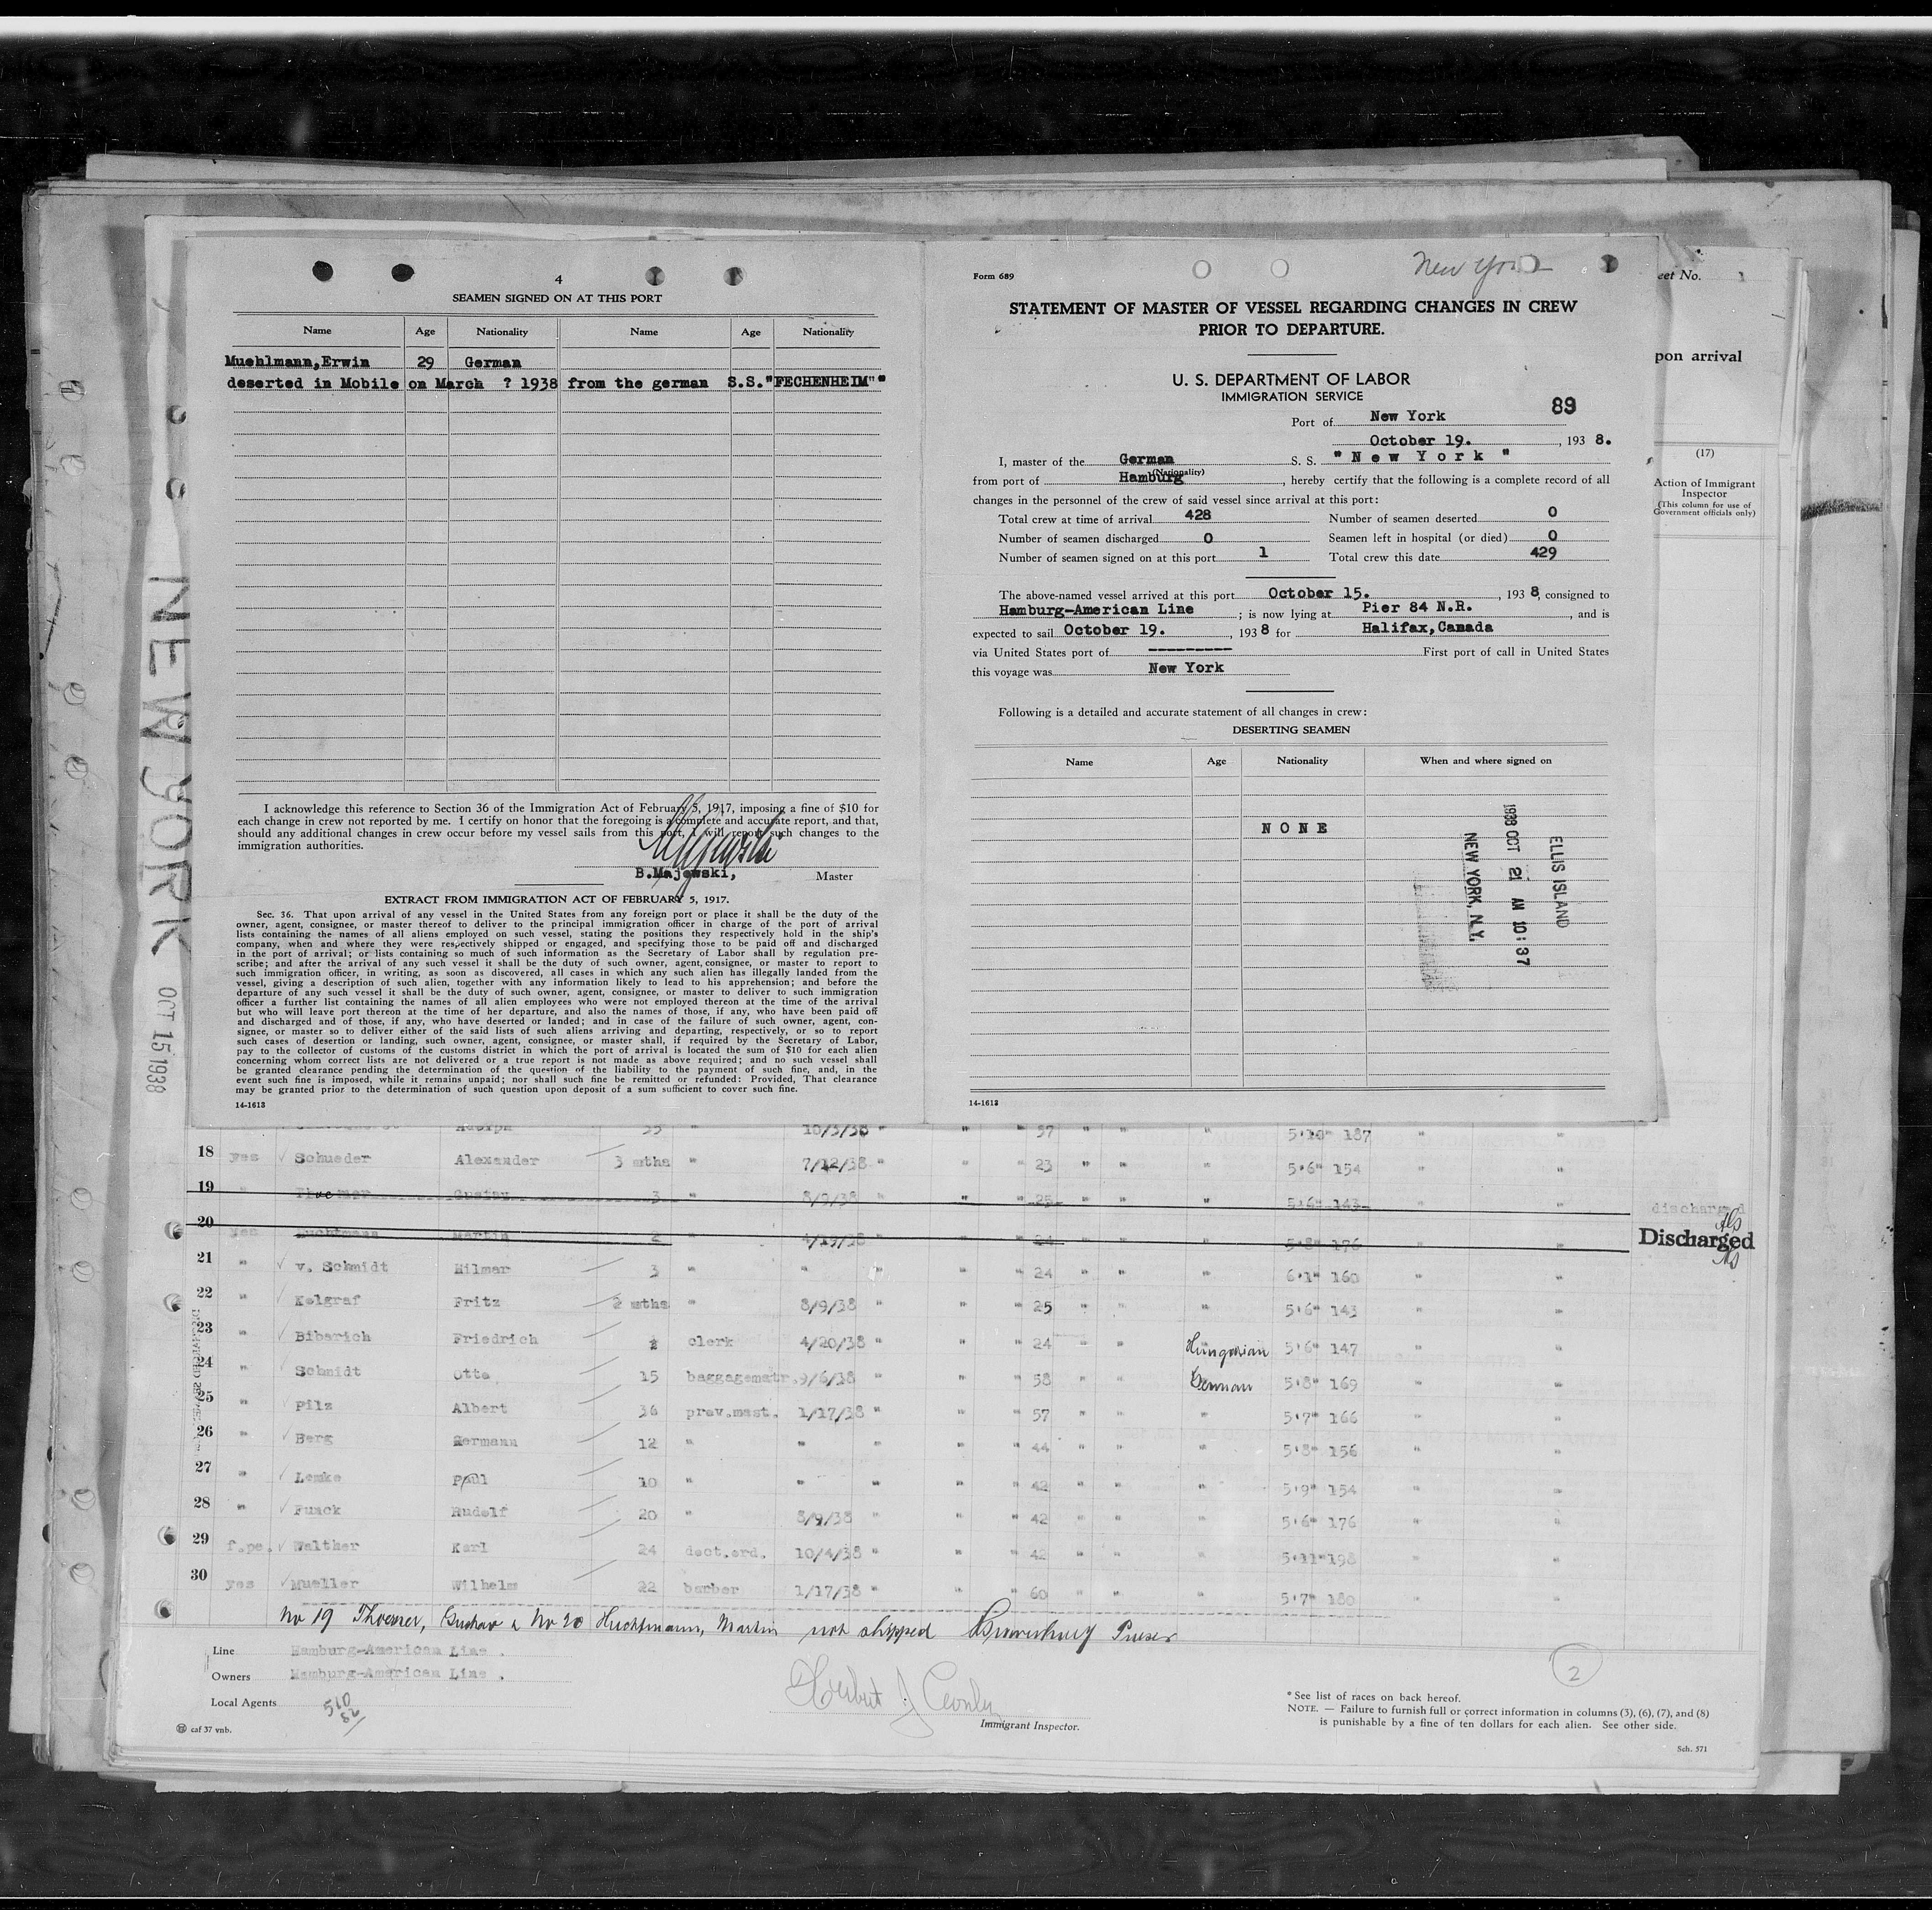 4
SEAMEN SIGNED ON AT THIS PORT
Name Age Nationality Name Age Nationality
Muehlmann,Erwin 29 German
deserted in Mobile on March ? 1938 from the german S.S."FECHENHEIM""
I acknowledge this reference to Section 36 of the Immigration Act of February 5, 1917, imposing a fine of $10 for
each change in crew not reported by me. I certify on honor that the foregoing is a complete and accurate report, and that,
should any additional changes in crew occur before my vessel sails from this port, I will report such changes to the
immigration authorities.
B.Majewski, Master
EXTRACT FROM IMMIGRATION ACT OF FEBRUARY 5, 1917.
Sec. 36. That upon arrival of any vessel in the United States from any foreign port or place it shall be the duty of the
owner, agent, consignee, or master thereof to deliver to the principal immigration officer in charge of the port of arrival
lists containing the names of all aliens employed on such vessel, stating the positions they respectively hold in the ship's
company, when and where they were respectively shipped or engaged, and specifying those to be paid off and discharged
in the port of arrival; or lists containing so much of such information as the Secretary of Labor shall by regulation pre-
scribe; and after the arrival of any such vessel it shall be the duty of such owner, agent, consignee, or master to report to
such immigration officer, in writing, as soon as discovered, all cases in which any such alien has illegally landed from the
vessel, giving a description of such alien, together with any information likely to lead to his apprehension; and before the
departure of any such vessel it shall be the duty of such owner, agent, consignee, or master to deliver to such immigration
officer a further list containing the names of all alien employees who were not employed thereon at the time of the arrival
but who will leave port thereon at the time of her departure, and also the names of those, if any, who have been paid off
and discharged and of those, if any, who have deserted or landed; and in case of the failure of such owner, agent, con-
signee, or master so to deliver either of the said lists of such aliens arriving and departing, respectively, or so to report
such cases of desertion or landing, such owner, agent, consignee, or master shall, if required by the Secretary of Labor,
pay to the collector of customs of the customs district in which the port of arrival is located the sum of $10 for each alien
concerning whom correct lists are not delivered or a true report is not made as above required; and no such vessel shall
be granted clearance pending the determination of the question of the liability to the payment of such fine, and, in the
event such fine is imposed, while it remains unpaid; nor shall such fine be remitted or refunded: Provided, That clearance
may be granted prior to the determination of such question upon deposit of a sum sufficient to cover such fine.
14-1613
Form 689
New York
STATEMENT OF MASTER OF VESSEL REGARDING CHANGES IN CREW
PRIOR TO DEPARTURE.
U. S. DEPARTMENT OF LABOR
IMMIGRATION SERVICE
89
Port of New York
October 19. , 193 8.
I, master of the German S. S. " N e w Y o r k "
(Nationality)
from port of Hamburg , hereby certify that the following is a complete record of all
changes in the personnel of the crew of said vessel since arrival at this port:
Total crew at time of arrival 428 Number of seamen deserted 0
Number of seamen discharged 0 Seamen left in hospital (or died) 0
Number of seamen signed on at this port 1 Total crew this date 429
The above-named vessel arrived at this port October 15. , 193 8, consigned to
Hamburg-American Line ; is now lying at Pier 84 N.R. , and is
expected to sail October 19. , 193 8 for Halifax,Canada
via United States port of --------- First port of call in United States
this voyage was New York
Following is a detailed and accurate statement of all changes in crew:
DESERTING SEAMEN
Name Age Nationality When and where signed on
N O N E
ELLIS ISLAND
1938 OCT 21 AM 10:37
NEW YORK, N.Y.
14-1613
eet No. 1
pon arrival
(17)
Action of Immigrant
Inspector
(This column for use of
Government officials only)
NEW YORK OCT 15 1938
Adolph 35 " 10/3/38 " " " 37 " " " 5'10" 187 " "
18 yes Schueder Alexander 3 mths " 7/12/38 " " " 23 " " " 5'6" 154 " "
19 " Thoemer Gustav 3 " 8/9/38 " " " 25 " " " 5'6" 143 " " discharged
20 yes Huchtmann Martin 2 " 4/19/38 " " 24 " 5'8" 176 " " Discharged
21 " v. Schmidt Hilmar 3 " " " " " 24 " " " 6'1" 160 " "
22 " Kelgraf Fritz 2 mths " 8/9/38 " " " 25 " " " 5'6" 143 " "
23 " Biberich Friedrich clerk 4/20/38 " " " 24 " " Hungarian 5'6" 147 " "
24 " Schmidt Otto 15 baggagemstr. 9/6/38 " " " 58 " " German 5'8" 169 " "
25 " Pilz Albert 36 prev.mast. 1/17/38 " " " 57 " " " 5'7" 166 " "
26 " Berg Hermann 12 " " " " " 44 " " " 5'8" 156 " "
27 " Lemke Paul 10 " " " " " 42 " " " 5'9" 154 " "
28 " Funck Rudolf 20 " 8/9/38 " " " 42 " " " 5'6" 176 " "
29 f.pe. Walther Karl 24 deot.erd. 10/4/38 " " " 42 " " " 5'11" 198 " "
30 yes Mueller Wilhelm 22 barber 1/17/38 " " " 60 " " " 5'7" 180 " "
No 19 Thoemer, Gustav & No 20 Huchtmann, Martin not shipped
Line Hamburg-American Line .
Owners Hamburg-American Line .
Local Agents
510
82
caf 37 vnb.
Immigrant Inspector.
2
*See list of races on back hereof.
NOTE. — Failure to furnish full or correct information in columns (3), (6), (7), and (8)
is punishable by a fine of ten dollars for each alien. See other side.
Sch. 571